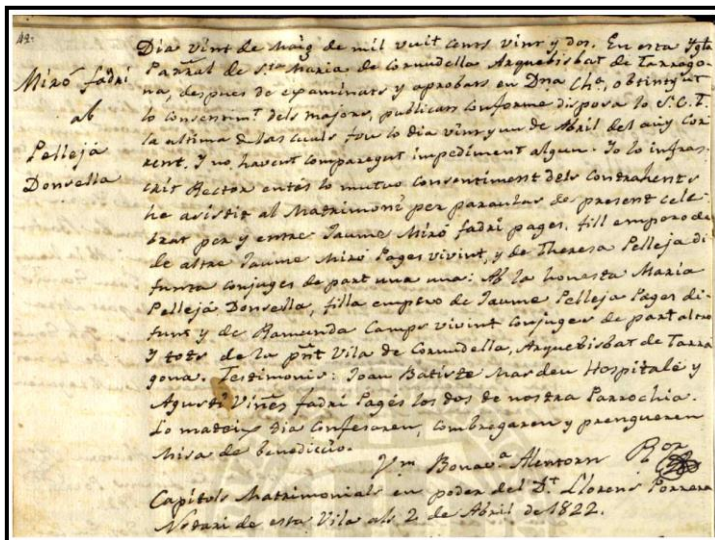 Dia vint de Maig de mil vuit cents vint y dos. En esta Ygla
Miró fadrí
ab
Pellejá
Donsella
Parral. de Sta. Maria de Cornudella Arquebisbat de Tarrago-
na, despues de examinats y aprobats en Dna Cha, obtingut
lo consentimt. dels majors, publicats conforme disposa lo S.C.T.
la ultima de las cuals fou lo dia vint y un de Abril del any cor-
rent. Y no havent comparegut impediment algun. Jo lo infras-
crit Rector entés lo mutuo consentiment dels contrahents
he asistit al Matrimoni per paraulas de present cele-
brat per y entre Jaume Miró fadrí pages, fill
de altre Jaume Miró Pages vivint, y de Theresa Pellejá di-
funta conjuges de part una: Ab la honesta Maria
Pellejá Donsella, filla de Jaume Pellejá Pages di-
funt y de Ramunda Camps vivint conjuges de part altre
Y tots de la pñt Vila de Cornudella, Arquebisbat de Tarra
gona. Testimonis: Joan Batiste Mardeu Hospitalé y
Agustí Viñes fadrí Pagés los dos de nostra Parrochia.
Lo mateix dia confesaren, combregaren y prengueren
Misa de benedicció.
Bonava. Alentorn Ror
Capitols Matrimonials en poder del Dt. Llorens Porrera
Notari de esta Vila als 2 de Abril de 1822.